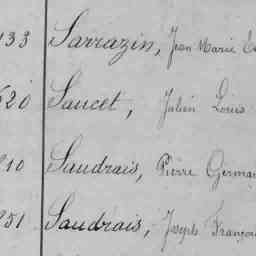 133 Sarrazin, Jean Marie
620 Saucet, Julien Louis
210 Saudrais, Pierre Germain
251 Saudrais, Joseph François